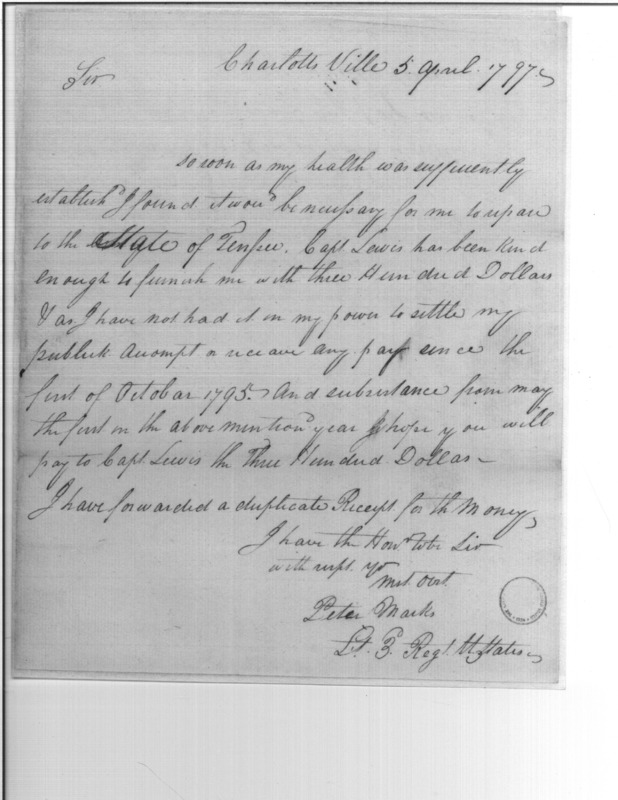 Charlotts Ville 5. April. 1797.
Sir
so soon as my health was suffucently
establishd I found it woud be necessary for me to repare
to the State of Tensee. Capt Lewis has been Kind
enough to furnish me with three Hundred Dollars
& as I have not had it in my power to settle my
publick Accompt or receave any pay since the
first of Octobar 1795. And subsistance from may
the first in the above mentiond year I hope you will
pay to Capt Lewis the Three Hundred Dollas
I have forwarded a duplicate Receipt for th Money
I have the Honr to be Sir
with respt. yr
mst. obt.
Peter Marks
Lt. 3. Regt. UStates